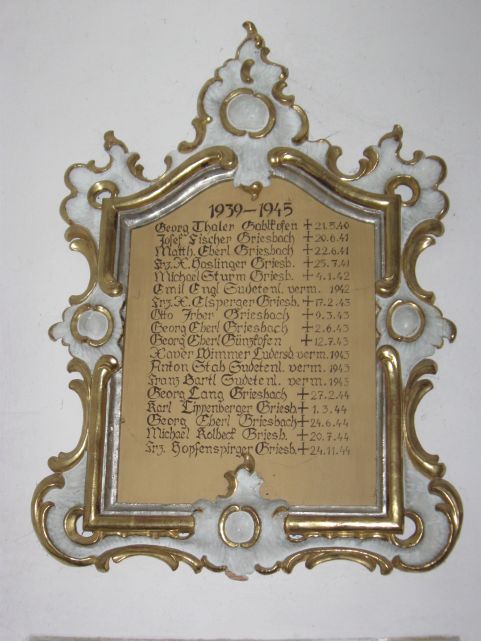 1939-1945
Georg Thaler Gahlkofen † 21.5.40
Josef Fischer Griesbach † 20.6.41
Matth. Eberl Griesbach † 22.6.41
Frz. X. Haslinger Griesb. † 25.7.41
Michael Sturm Griesb. † 4.1.42
Emil Engl Sudetenl. verm. 1942
Frz. X. Elsperger Griesb. † 17.2.43
Otto Griesbach † 9.3.43
Georg Eberl Griesbach † 2.6.43
Georg Eberl Günzkofen † 12.7.43
Xaver Wimmer verm. 1943
Anton Stab Sudetenl. verm. 1943
Franz Bartl Sudetenl. verm. 1943
Georg Lang Griesbach † 27.2.44
Karl Lippenberger Griesb. † 1.3.44
Georg Eberl Griesbach † 24.6.44
Michael Kolbeck Griesb. † 20.7.44
Frz. Hopfenspirger Griesb. † 24.11.44